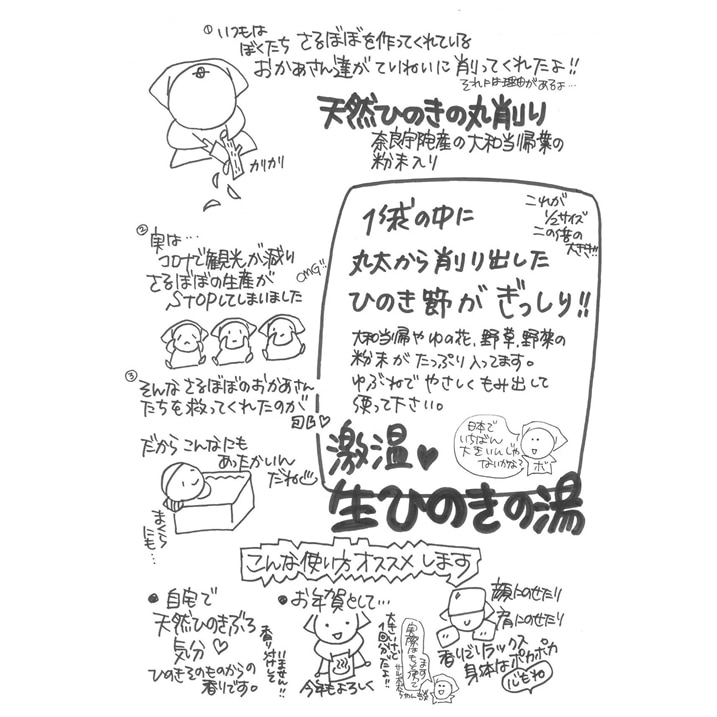 ①いつもは
ぼくたち さるぼぼを作ってくれている
おかあさん達が ていねいに 削ってくれたよ!!
それには理由があるよ…
天然ひのきの丸削り
奈良宇陀産の大和当帰葉の
粉末入り
カリカリ
これが
1/2サイズ
この倍の
大きさ!!
1袋の中に
丸太から削り出した
ひのき節が ぎっしり!!
大和当帰やゆの花、野草、野菜の
粉末が たっぷり入ってます。
ゆぶねで やさしくもみ出して
使って下さい。
②実は…
コロナで観光が減り
さるぼぼの生産が
STOPしてしまいました
OMG!!
③そんなさるぼぼのおかあさん
たちを救ってくれたのが
だから こんなにも
あったかいん
だね
まくら
にも…
日本で
いちばん
大きいんじゃ
ないかな?
ボ
激温♥
生ひのきの湯
こんな使い方オススメします
●自宅で
天然ひのきぶろ
気分♡
ひのきそのものからの
香りです。
香り付けして
いません!!
●お年賀として…
今年もよろしく
大きいけど
1回分だよ!!
実際はもっと使って
ます
顔にのせたり
肩にのせたり
香りでリラックス
身体はポカポカ
心もね